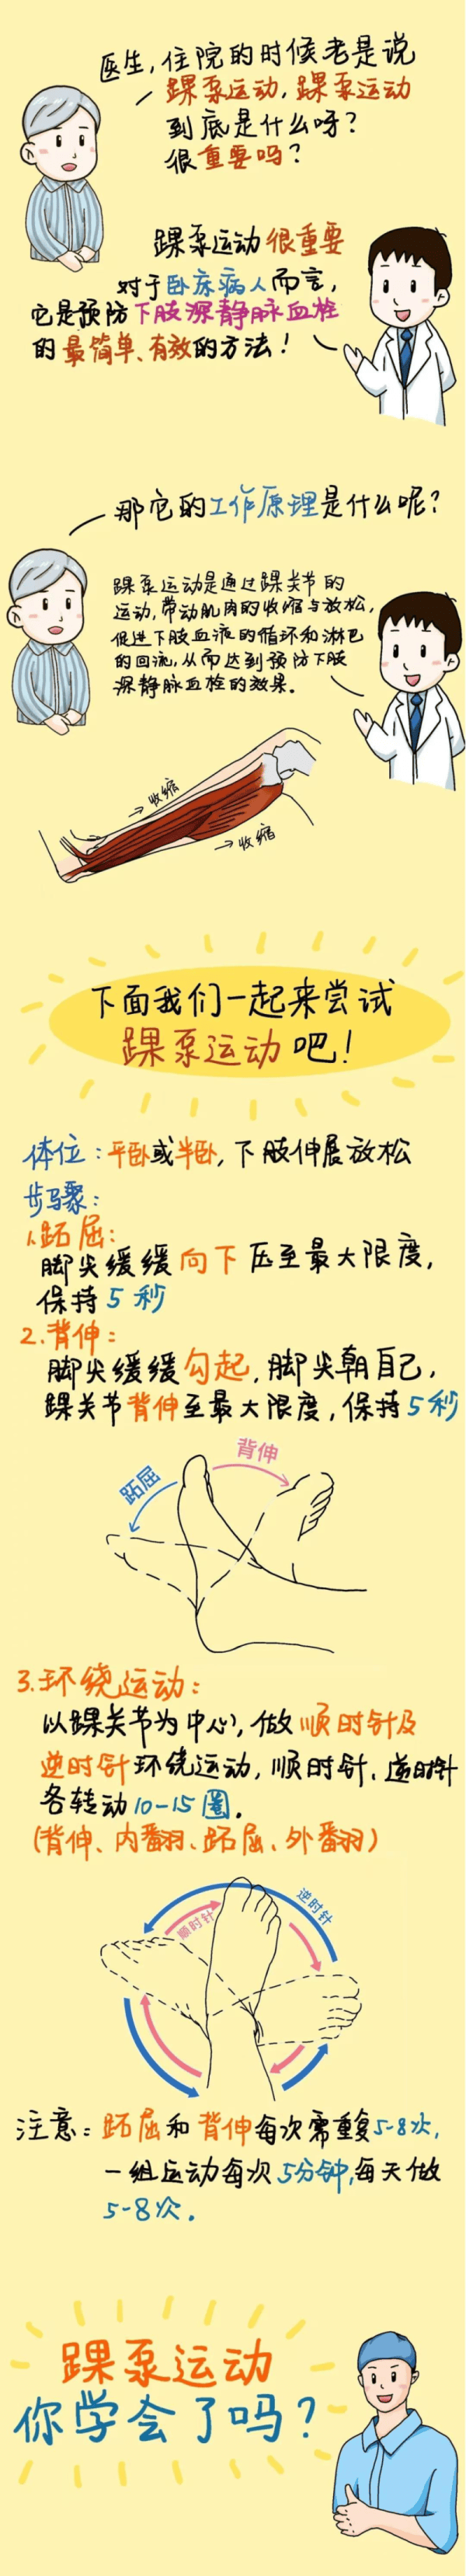 医生,住院的时候老是说
踝泵运动,踝泵运动
到底是什么呀?
很重要吗?
踝泵运动很重要
对于卧床病人而言,
它是预防下肢深静脉血栓
的最简单、有效的方法!
那它的工作原理是什么呢?
踝泵运动是通过踝关节的
运动,带动肌肉的收缩与放松,
促进下肢血液的循环和淋巴
的回流,从而达到预防下肢
深静脉血栓的效果。
→收缩
→收缩
下面我们一起来尝试
踝泵运动吧!
体位:平卧或半卧,下肢伸展放松
步骤:
1.跖屈:
脚尖缓缓向下压至最大限度,
保持5秒
2.背伸:
脚尖缓缓勾起,脚尖朝自己,
踝关节背伸至最大限度,保持5秒
背伸
跖屈
3.环绕运动:
以踝关节为中心,做顺时针及
逆时针环绕运动,顺时针、逆时针
各转动10-15圈。
(背伸、内翻、跖屈、外翻)
逆时针
顺时针
注意:跖屈和背伸每次需重复5-8次,
一组运动每次5分钟,每天做
5-8次.
踝泵运动
你学会了吗?